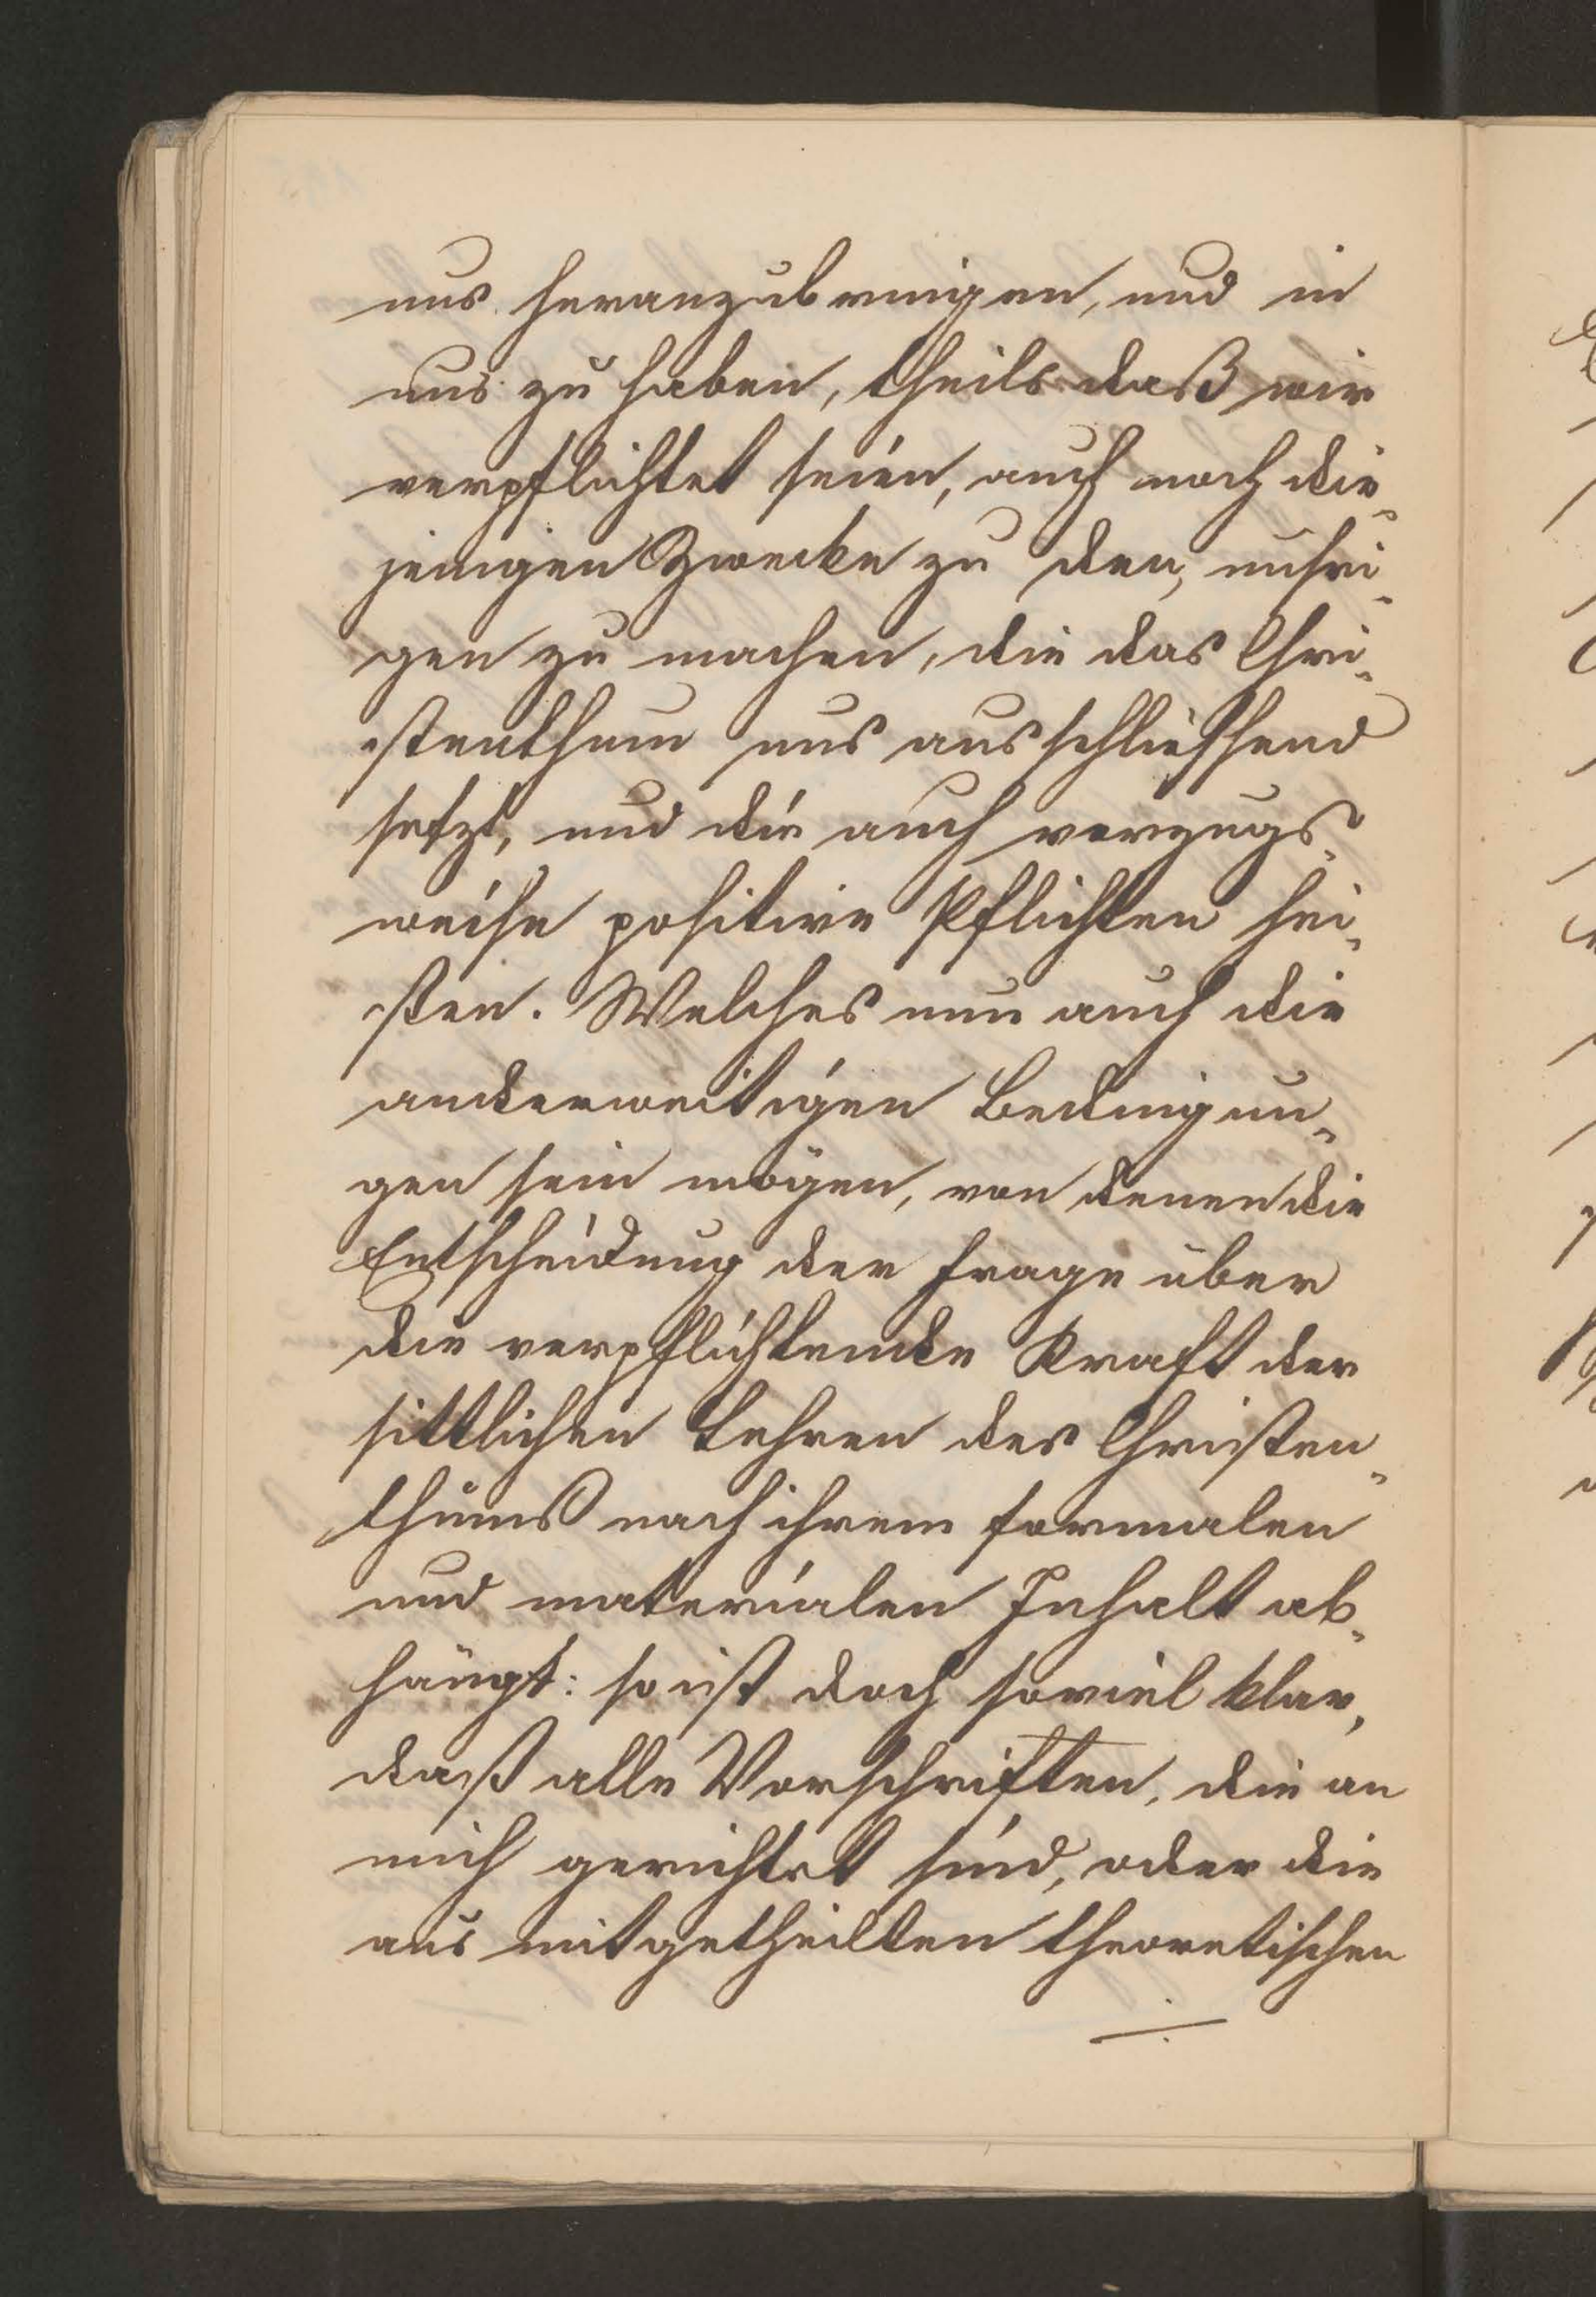 uns heranzubringen, und in
uns zu haben, theils daß wir
verpflichtet seien, auch noch die-
jenigen Zwecke zu den, unsri-
gen zu machen, die das Chri-
stenthum uns ausschließend
setzt, und die auch vorzugs-
weise positive Pflichten hei-
ßen. Welches nun auch die
anderweitigen Bedingun-
gen sein mögen, von denen die
Entscheidung der Frage über
die verpflichtende Kraft der
sittlichen Lehren des Christen-
thums nach ihrem formalen
und materialen Inhalt ab-
hängt: so ist doch soviel klar,
daß alle Vorschriften, die an
mich gerichtet sind, oder die
aus mitgetheilten theoretischen